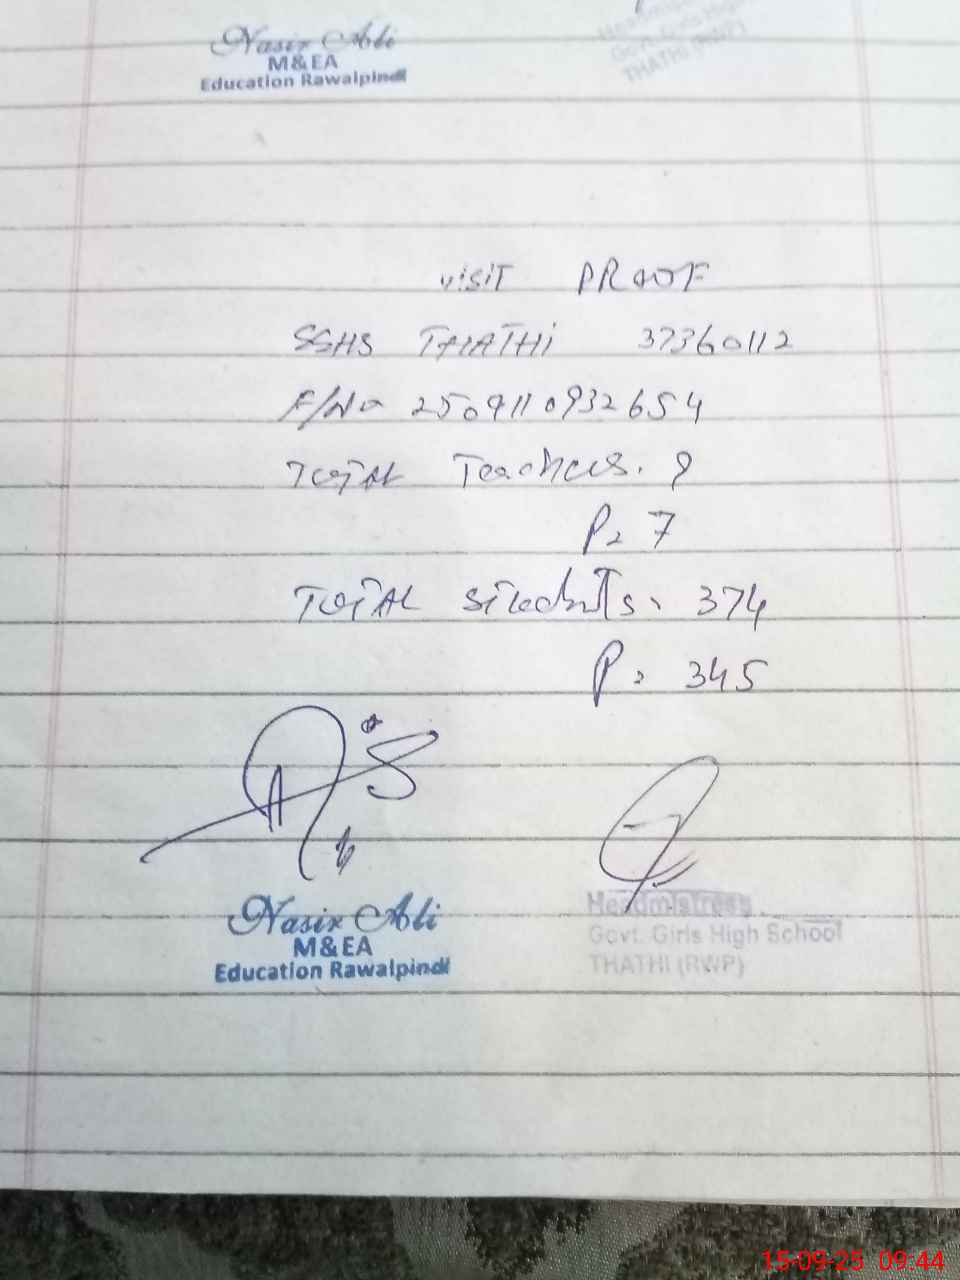 Nasir Ali
M&EA
Education Rawalpindi
Govt. Girls High
THATHI (RWP)
VISIT PROOF
SGHS THATHI 37360112
F/No 2509110932654
TOTAL Teachers. 9
P= 7
TOTAL students. 374
P= 345
Nasir Ali
M&EA
Education Rawalpindi
Headmistress
Govt. Girls High School
THATHI (RWP)
15-09-25 09:44